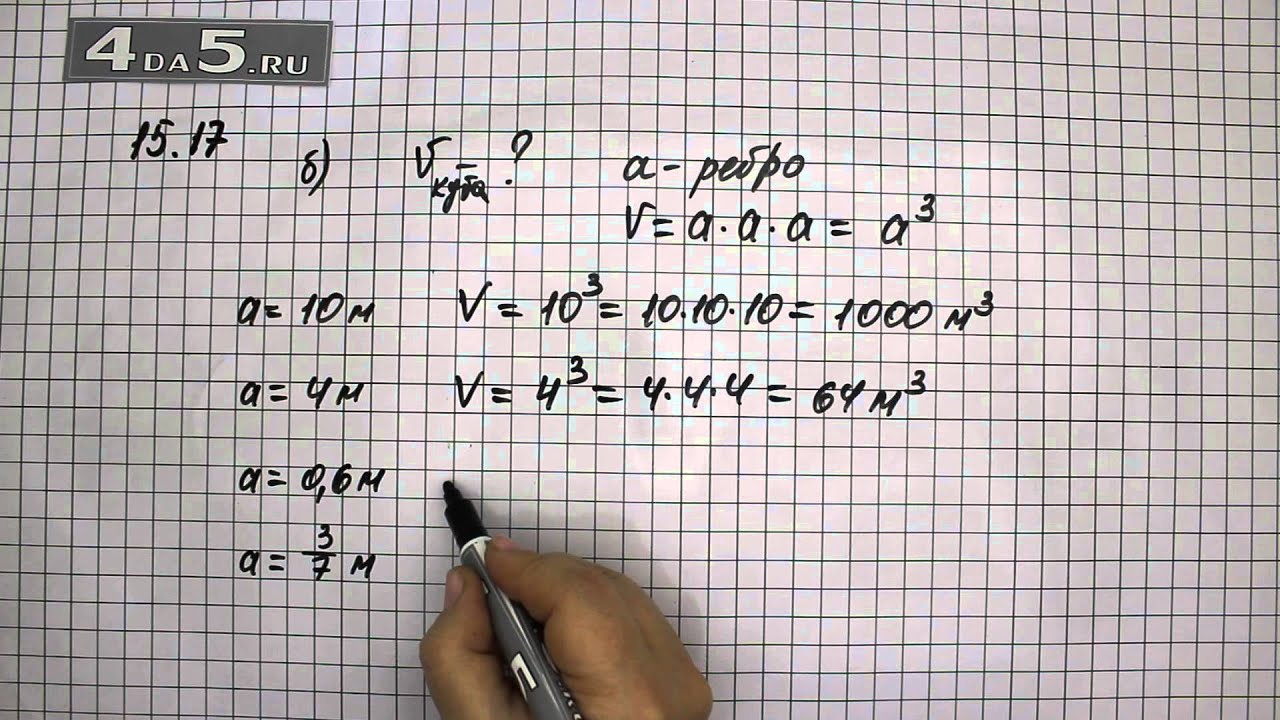 4DA5.RU
15.17 б) V куба - ? a - ребро
V = a · a · a = a³
a = 10 м V = 10³ = 10 · 10 · 10 = 1000 м³
a = 4 м V = 4³ = 4 · 4 · 4 = 64 м³
a = 0,6 м
a = 3/7 м